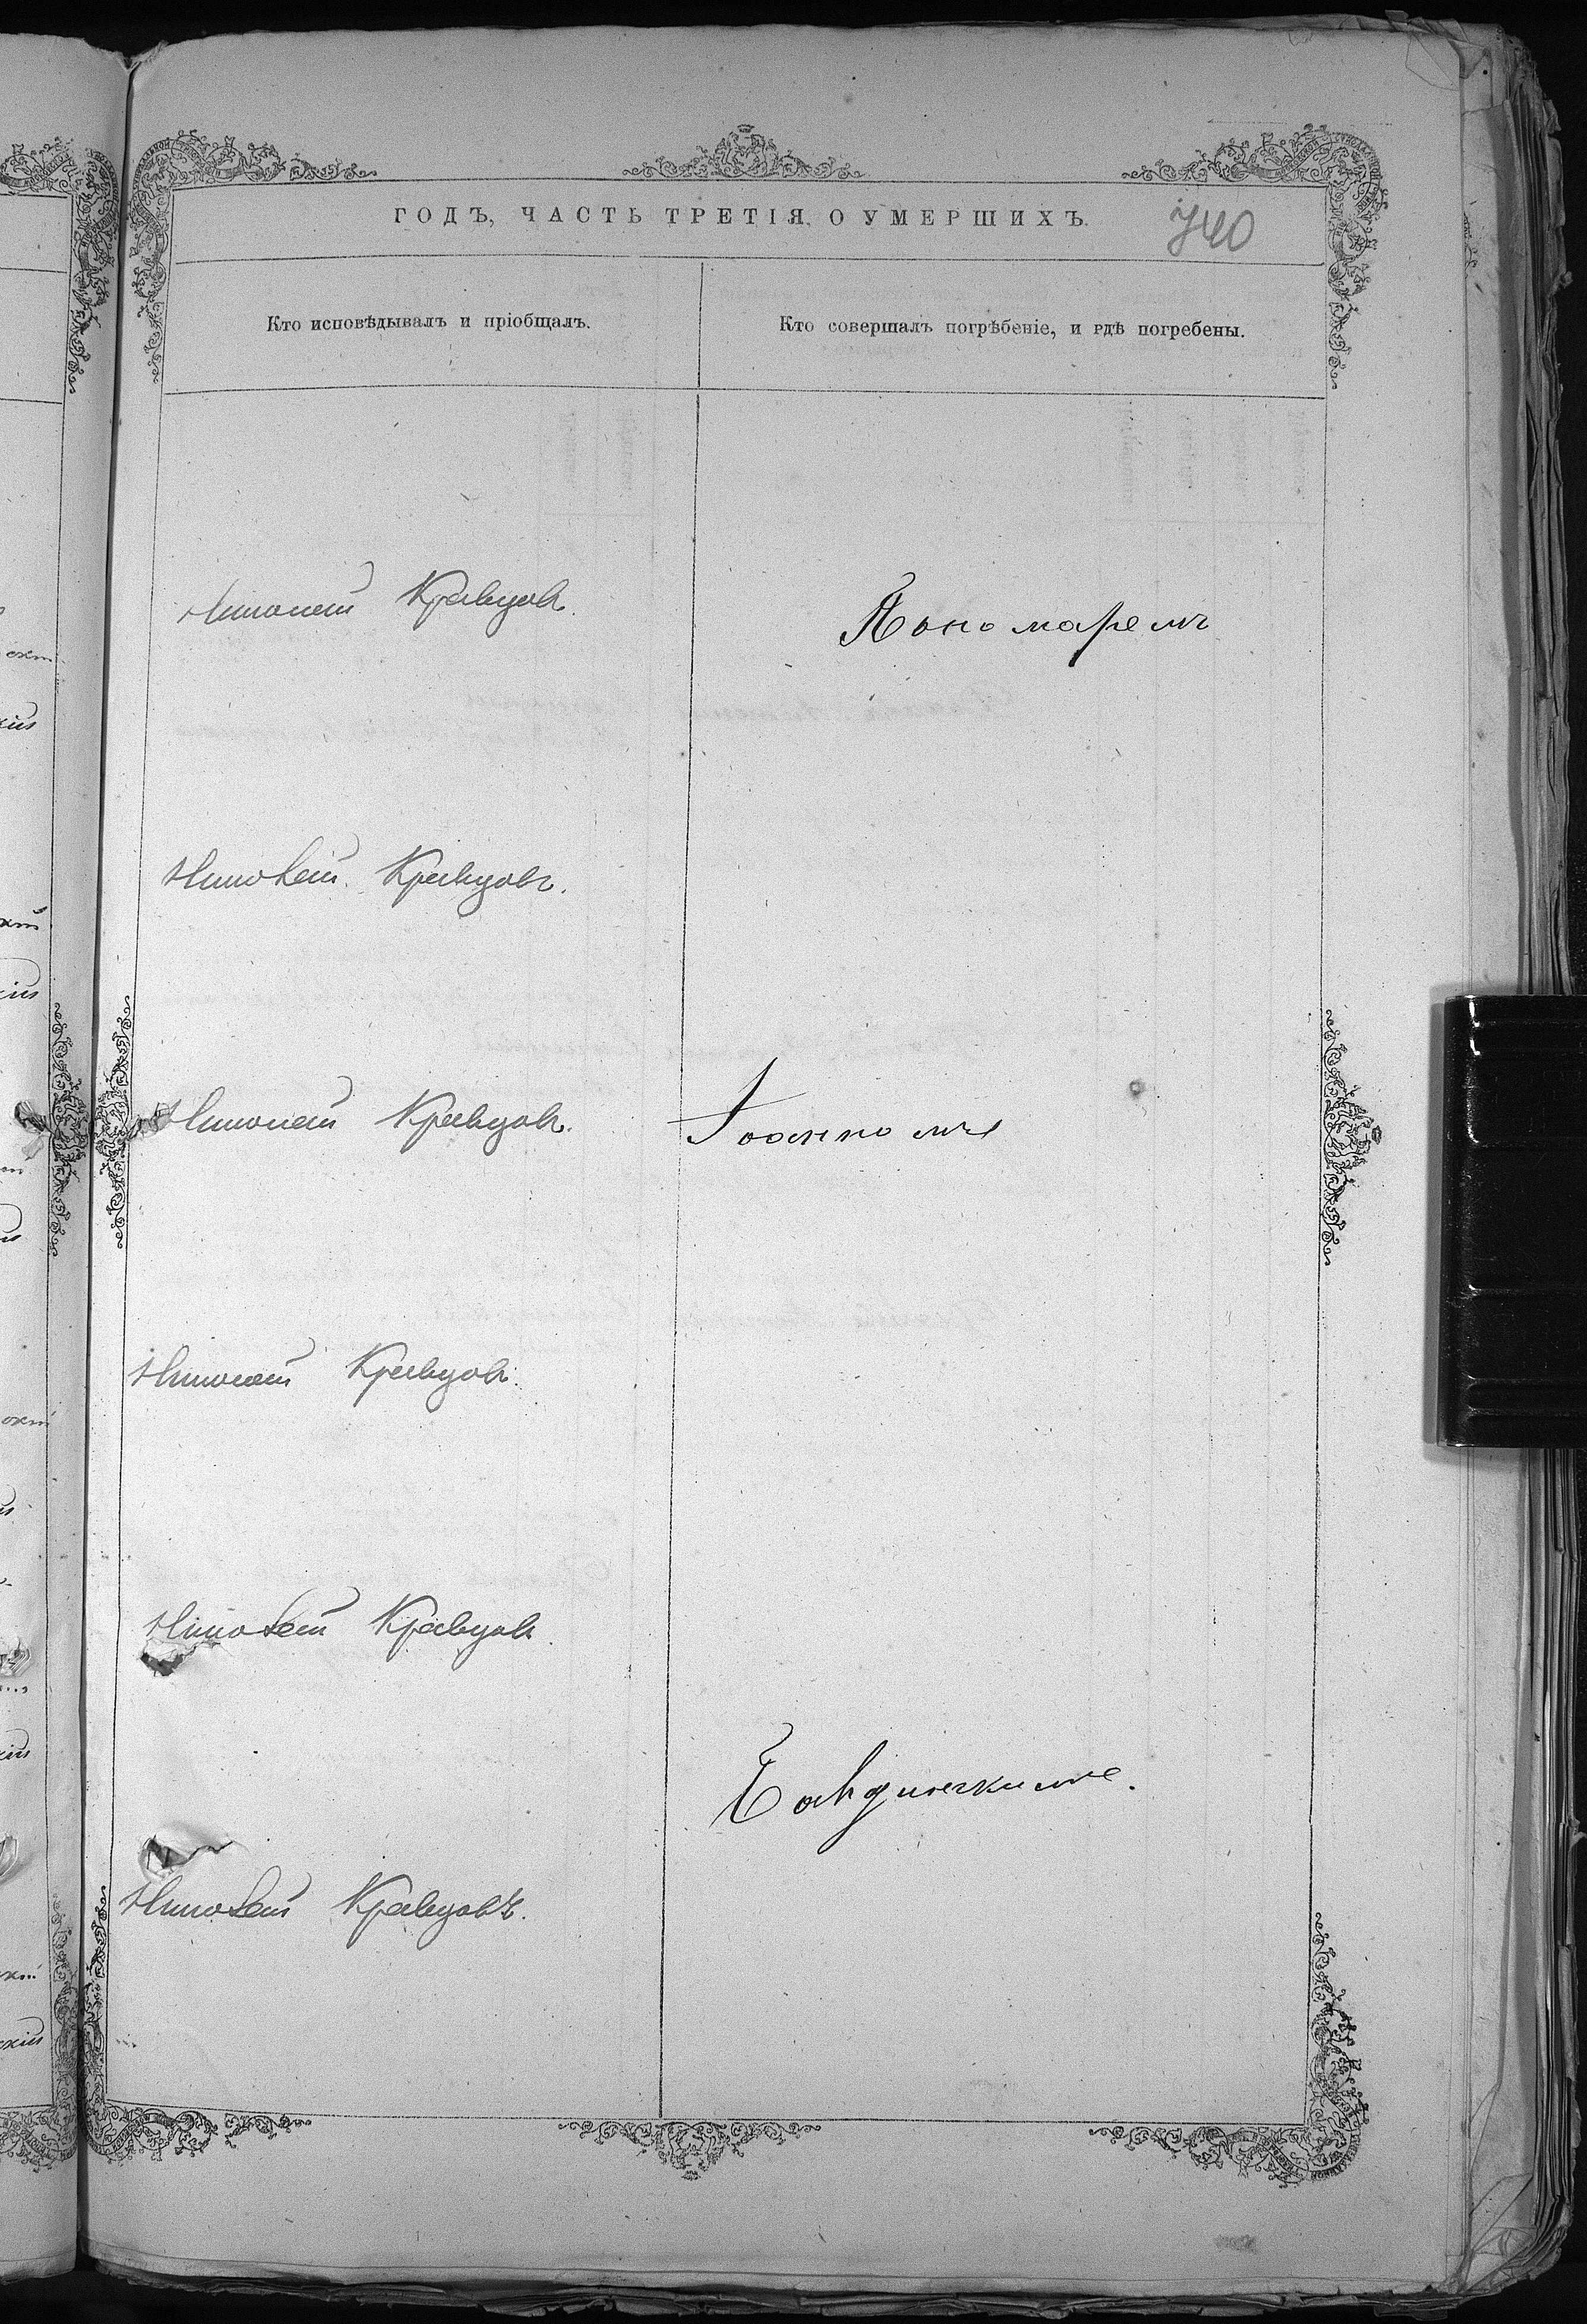 ГОДЪ, ЧАСТЬ ТРЕТІЯ, О УМЕРШИХЪ.
740
Кто исповѣдывалъ и пріобщалъ.
Кто совершалъ погрѣбеніе, и гдѣ погребены.
Николай Кравцовъ.
Пономаремъ
Николай Кравцовъ.
Николай Кравцовъ.
Іоанномъ
Николай Кравцовъ.
Николай Кравцовъ.
Николай Кравцовъ.